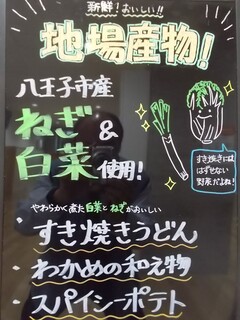 新鮮!おいしい!!
地場産物!
八王子市産
ねぎ &
白菜使用!
すき焼きには
はずせない
野菜だよね!
やわらかく煮た白菜とねぎがおいしい
・すき焼きうどん
・わかめの和え物
・スパイシーポテト